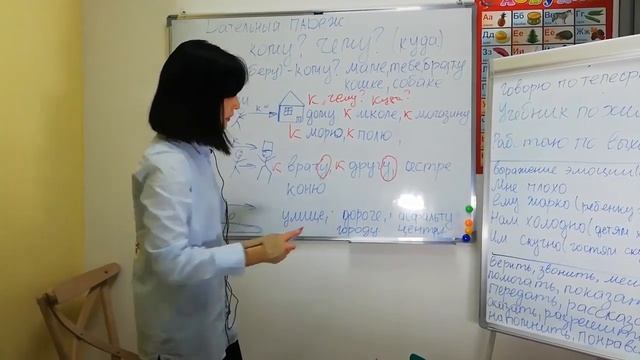 Дательный падеж
кому? чему? (куда)
(беру) - кому? маме, тебе, врату
кошке, собаке
к, чему? куда?
дому к школе, к магазину
к морю, к полю,
к врату, к другу, сестре
коню
улице, дороге, асфальту
городу центру
Аа Бб Вв Гг
Дд Ее Ёё Жж
говорю по телеф
Учебник по
Работаю по
Выражение эмоций
Мне плохо
Ему жарко (ребенку
Нам холодно (детям
Им скучно (гостям ск
Верить, звонить, меш
помогать, показат
передать, рассказ
сказать, разрешит
напомнить, понрави